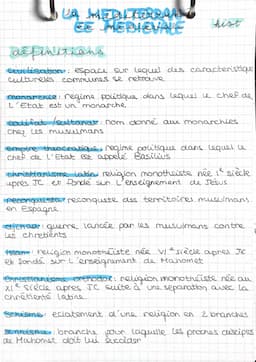 LA MEDITERRAN
EE MEDIEVALE
hist
définitions
civilisation: espace sur lequel des caractéristiques
culturelles communes se retrouve
monarchie: régime politique dans lequel le chef de
L'Etat est un monarche
califat/sultanat: nom donné aux monarchies
chez les musulmans
empire théocratique: régime politique dans lequel le
chef de l'Etat est appelé Basilius
christianisme latin: religion monothéiste née 1er siècle
après JC et fondé sur L'enseignement de Jésus
reconquista: reconquête des territoires musulmans
en Espagne
djihad: guerre lancée par les musulmans contre
les chrétients
Islam: religion monothéiste née VIe siècle après JC
et fondé sur l'enseignement de Mahomet
christianisme orthodoxe: religion monothéiste née au
XIe siècle après JC suite à une séparation avec la
chrétienté latine.
Schisme: éclatement d'une religion en 2 branches
sunnisme: branche pour laquelle les proches disciples
de Mahomet doit lui succéder